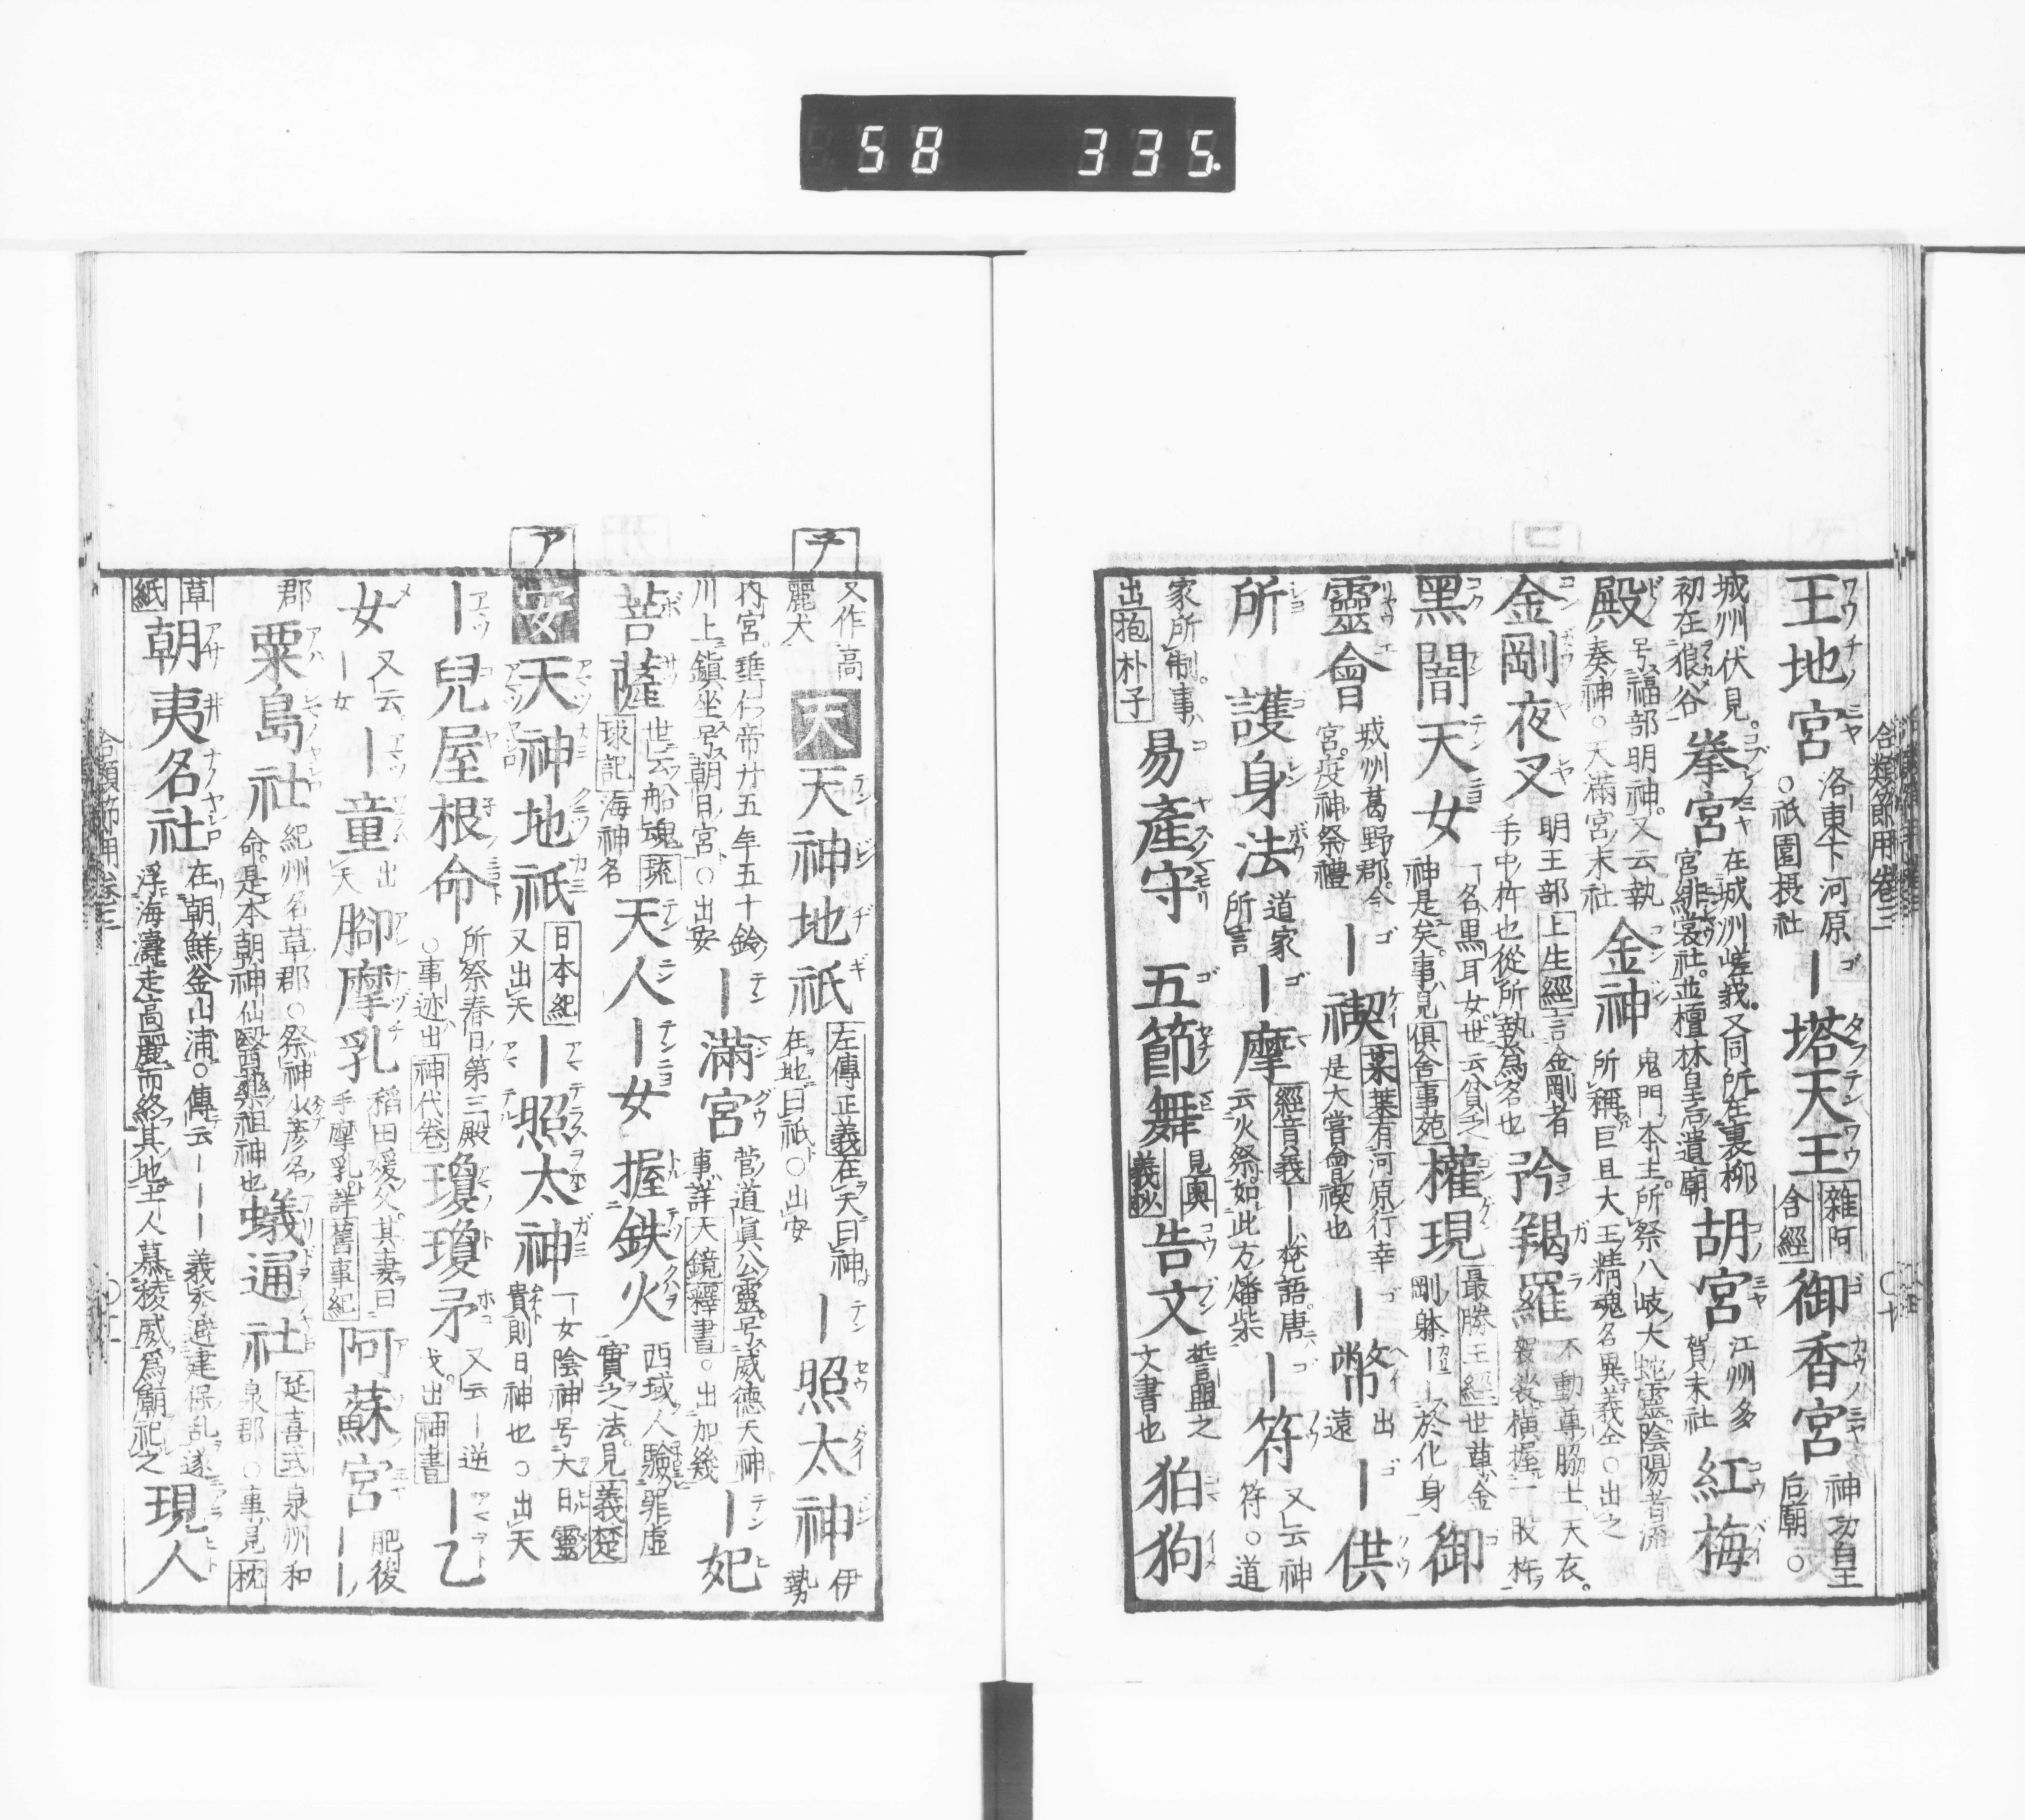 58 335.
合類節用巻三 〇十
王地宮 洛東下河原〇祇園摂社 ー塔天王 雜阿含經 御香宮 神功皇后廟〇
城州伏見初在狼谷 拳宮 在城州嵯峨又同所在裏柳宮非裳社並檀林皇后遺廟 胡宮 江州多賀末社 紅梅
殿 号福部明神又云執奏神〇天滿宮末社 金神 鬼門本土所祭八岐大蛇靈陰陽者流所稱巨旦大王精魂名異義仝〇出之
金剛夜叉 明王部上生經言金剛者手中杵也從所執爲名也 矜羯羅 不動尊脇士天衣袈裟横握一股杵
黑闇天女 一名黒耳女世云貧乏神是矣事見俱舍事苑 權現 最勝王經世尊金剛躰ーー於化身 御
靈會 城州葛野郡今宮疫神祭禮 ー禊 葉葉有河原行幸是大嘗會禊也 ー幣 出遠 ー供
所 護身法 道家所言 ー摩 經音義ーー梵語唐云火祭如此方燔柴 ー符 又云神符〇道
家所制事出抱朴子 易產守 五節舞 見奥義抄 告文 誓盟之文書也 狛狗
チ
又作高麗犬 天 天神地祇 左傳正義在天曰神在地曰祇〇出安 ー照太神 伊勢
内宮垂仁帝廿五年五十鈴川上鎮坐号朝日宮〇出安 ー滿宮 菅道眞公靈号威德天神事詳大鏡釋書〇出加幾 ー妃
菩薩 世云船魂琉球記海神名 天人 ー女 握鉄火 西域人驗罪虚實之法見義楚
ア
安 天神地祇 日本紀又出天 ー照太神 一女陰神号大日靈貴則日神也〇出天
ー兒屋根命 所祭春日第三殿〇事迹出神代巻 瓊瓊矛 又云ー逆戈出神書 ー乙
女 又云ー女 ー童 出天 腳摩乳 稻田媛父其妻曰手摩乳詳舊事紀 阿蘇宮 肥後ーー
郡 粟島社 紀州名草郡〇祭神少彦名命是本朝神仙醫藥祖神也 蟻通社 延喜式泉州和泉郡〇事見枕
草紙 朝夷名社 在朝鮮釜山浦〇傳云ーーー義秀避建保乱遂浮海濤走高麗而終其地土人慕稜威爲廟祀之 現人
合類節用巻三 〇十一